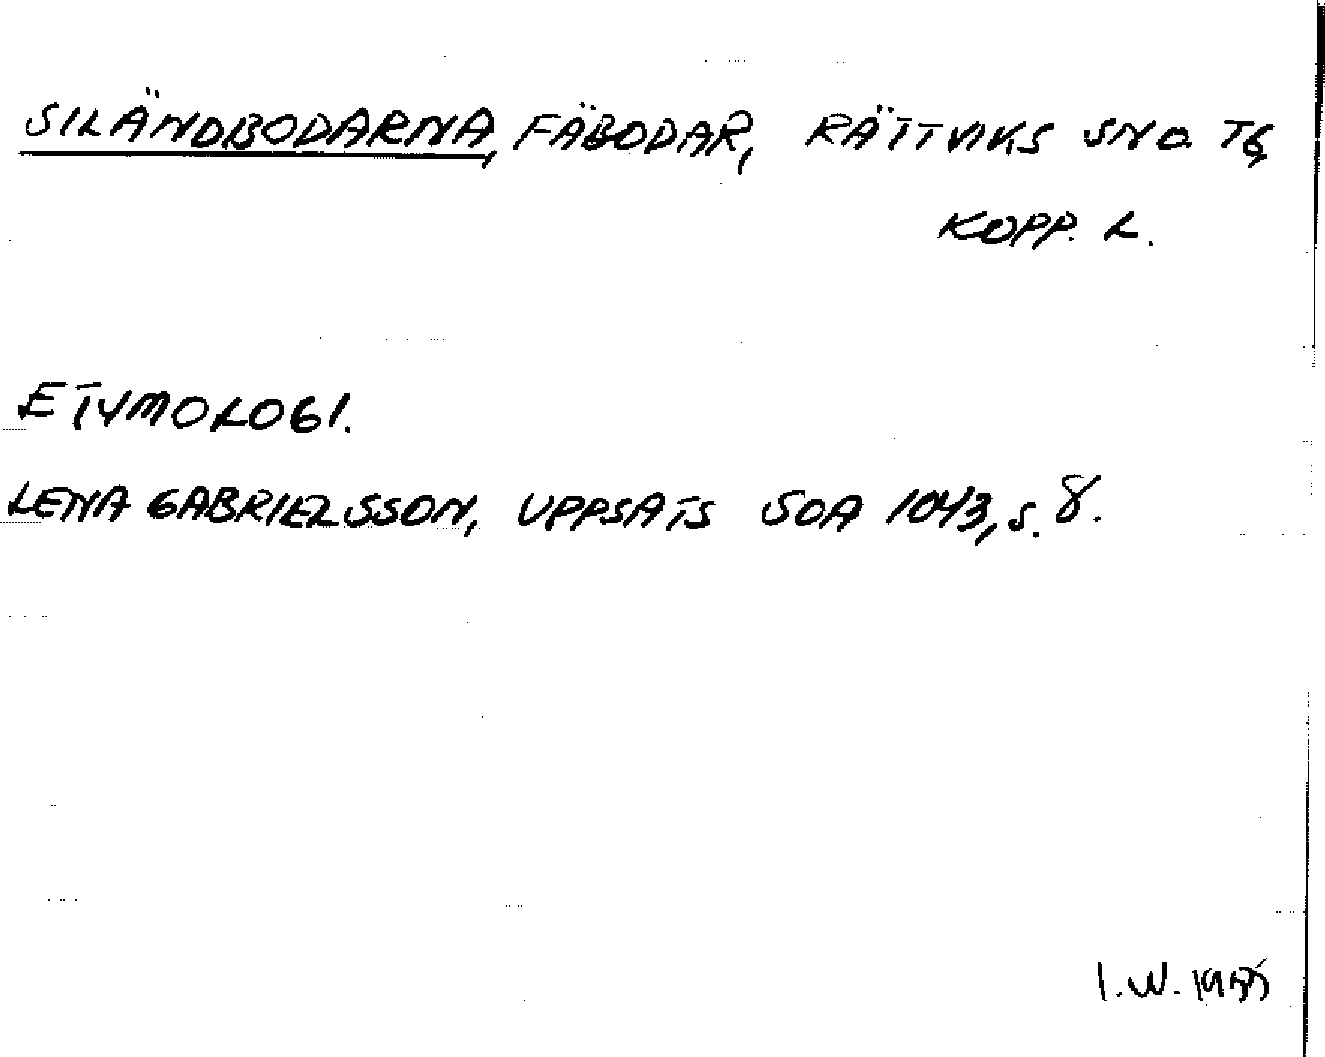 SILÄNDBODARNA, FÄBODAR, RÄTTVIKS SND. TG,
KOPP. L.
ETYMOLOGI.
LENA GABRIELSSON, UPPSATS SOA 1043, S. 8.
I.W.